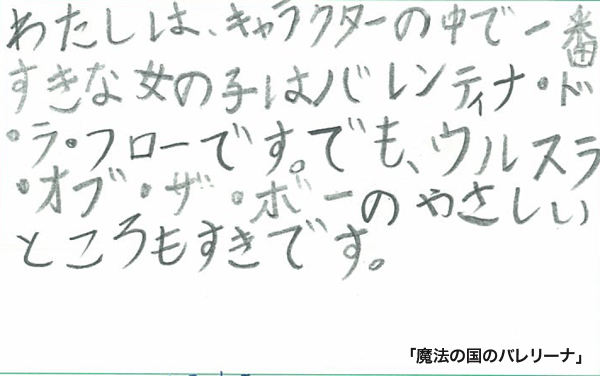 わたしは、キャラクターの中で一番
すきな女の子はバレンティナ・ド
・ラ・フローです。でも、ウルスラ
・オブ・ザ・ボーのやさしい
ところもすきです。
「魔法の国のバレリーナ」